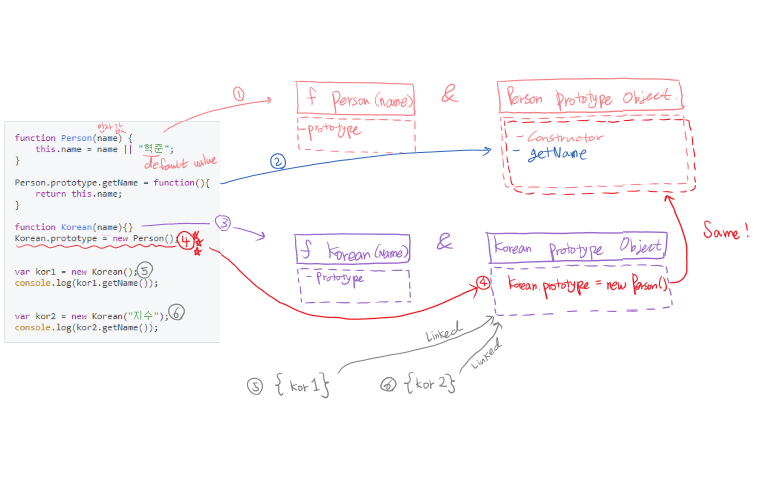 ①
f Person(name)
&
Person prototype Object.
- prototype
- Constructor
- getName
②
인자값
function Person(name) {
this.name = name || "혁준";
}
default value
Person.prototype.getName = function(){
return this.name;
}
function Korean(name){}
③
Korean.prototype = new Person();
④
f Korean(Name)
&
Korean Prototype Object
Same!
- Prototype
④ Korean.prototype = new Person()
var kor1 = new Korean();
⑤
console.log(kor1.getName());
var kor2 = new Korean("지수");
⑥
console.log(kor2.getName());
Linked
Linked
⑤ {kor1}
⑥ {kor2}